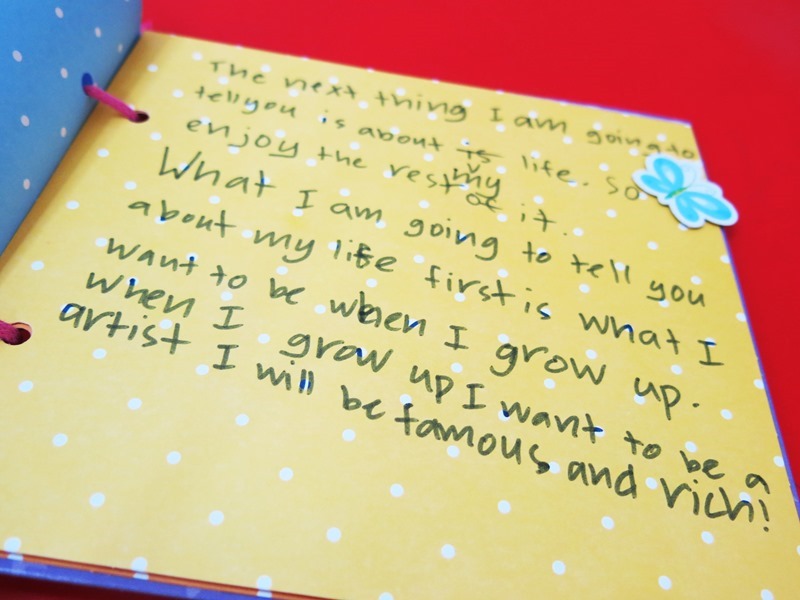 The next thing I am going to
tell you is about my life. So
enjoy the rest of it.
What I am going to tell you
about my life first is what I
want to be when I grow up.
when I grow up I want to be a
artist I will be famous and rich!